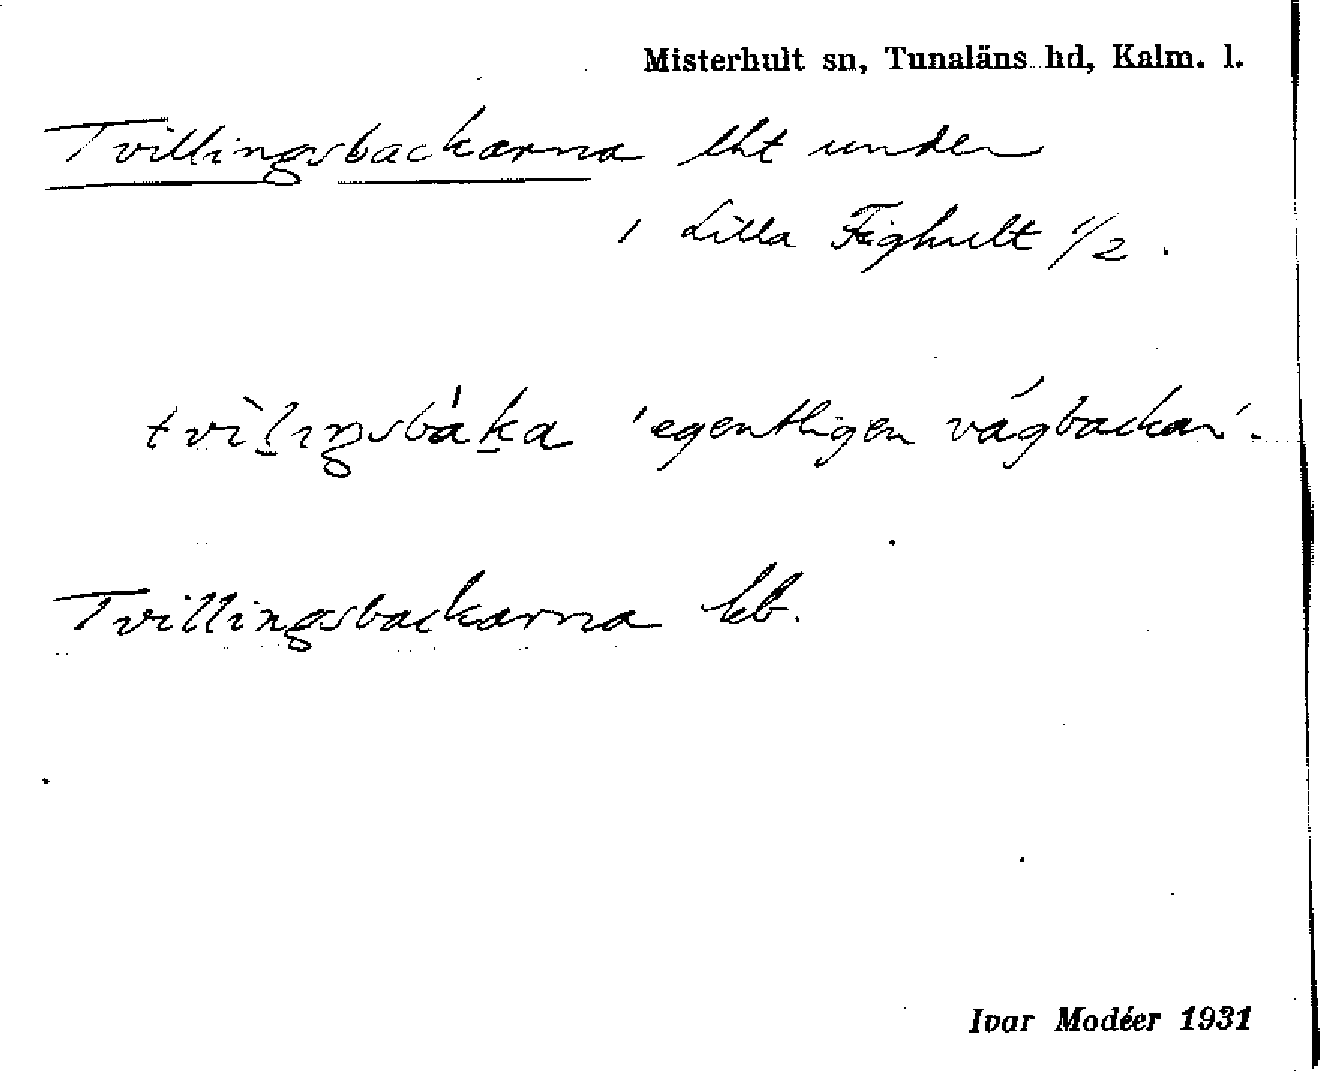 Misterhult sn, Tunaläns hd, Kalm. l.
Tvillingsbackarna lht under
1 Lilla Fighult 1/2.
tvìlıŋsbáka 'egentligen vägbackar'.
Tvillingsbackarna kb.
Ivar Modéer 1931